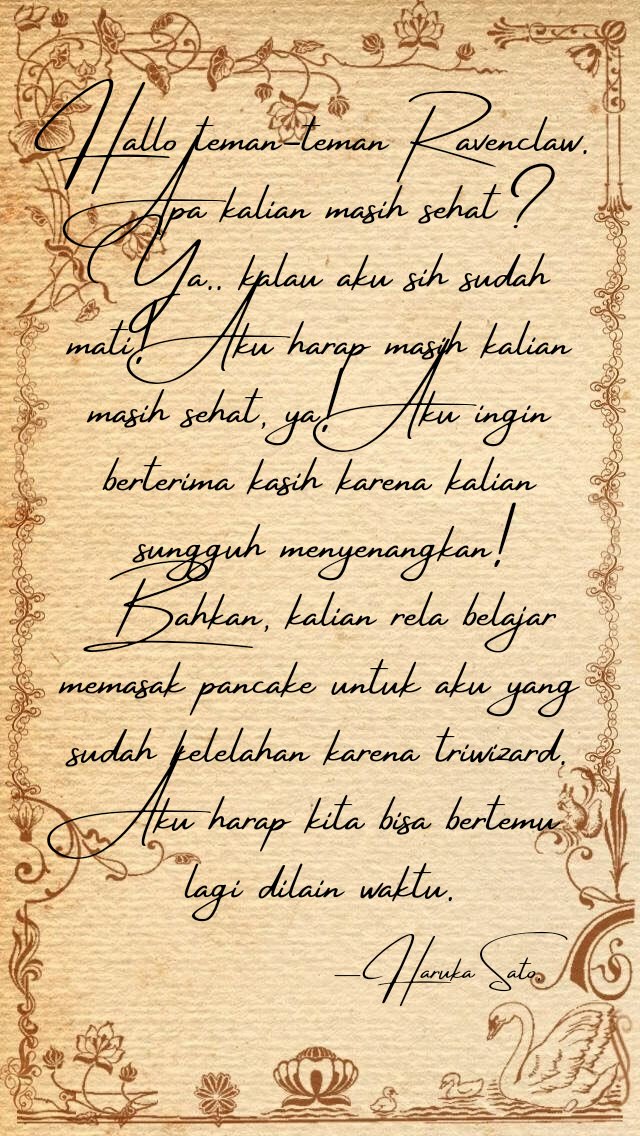 Hallo teman-teman Ravenclaw.
Apa kalian masih sehat?
Ya.. kalau aku sih sudah
mati! Aku harap masih kalian
masih sehat, ya! Aku ingin
berterima kasih karena kalian
sungguh menyenangkan!
Bahkan, kalian rela belajar
memasak pancake untuk aku yang
sudah kelelahan karena triwizard.
Aku harap kita bisa bertemu
lagi dilain waktu.
—Haruka Sato.